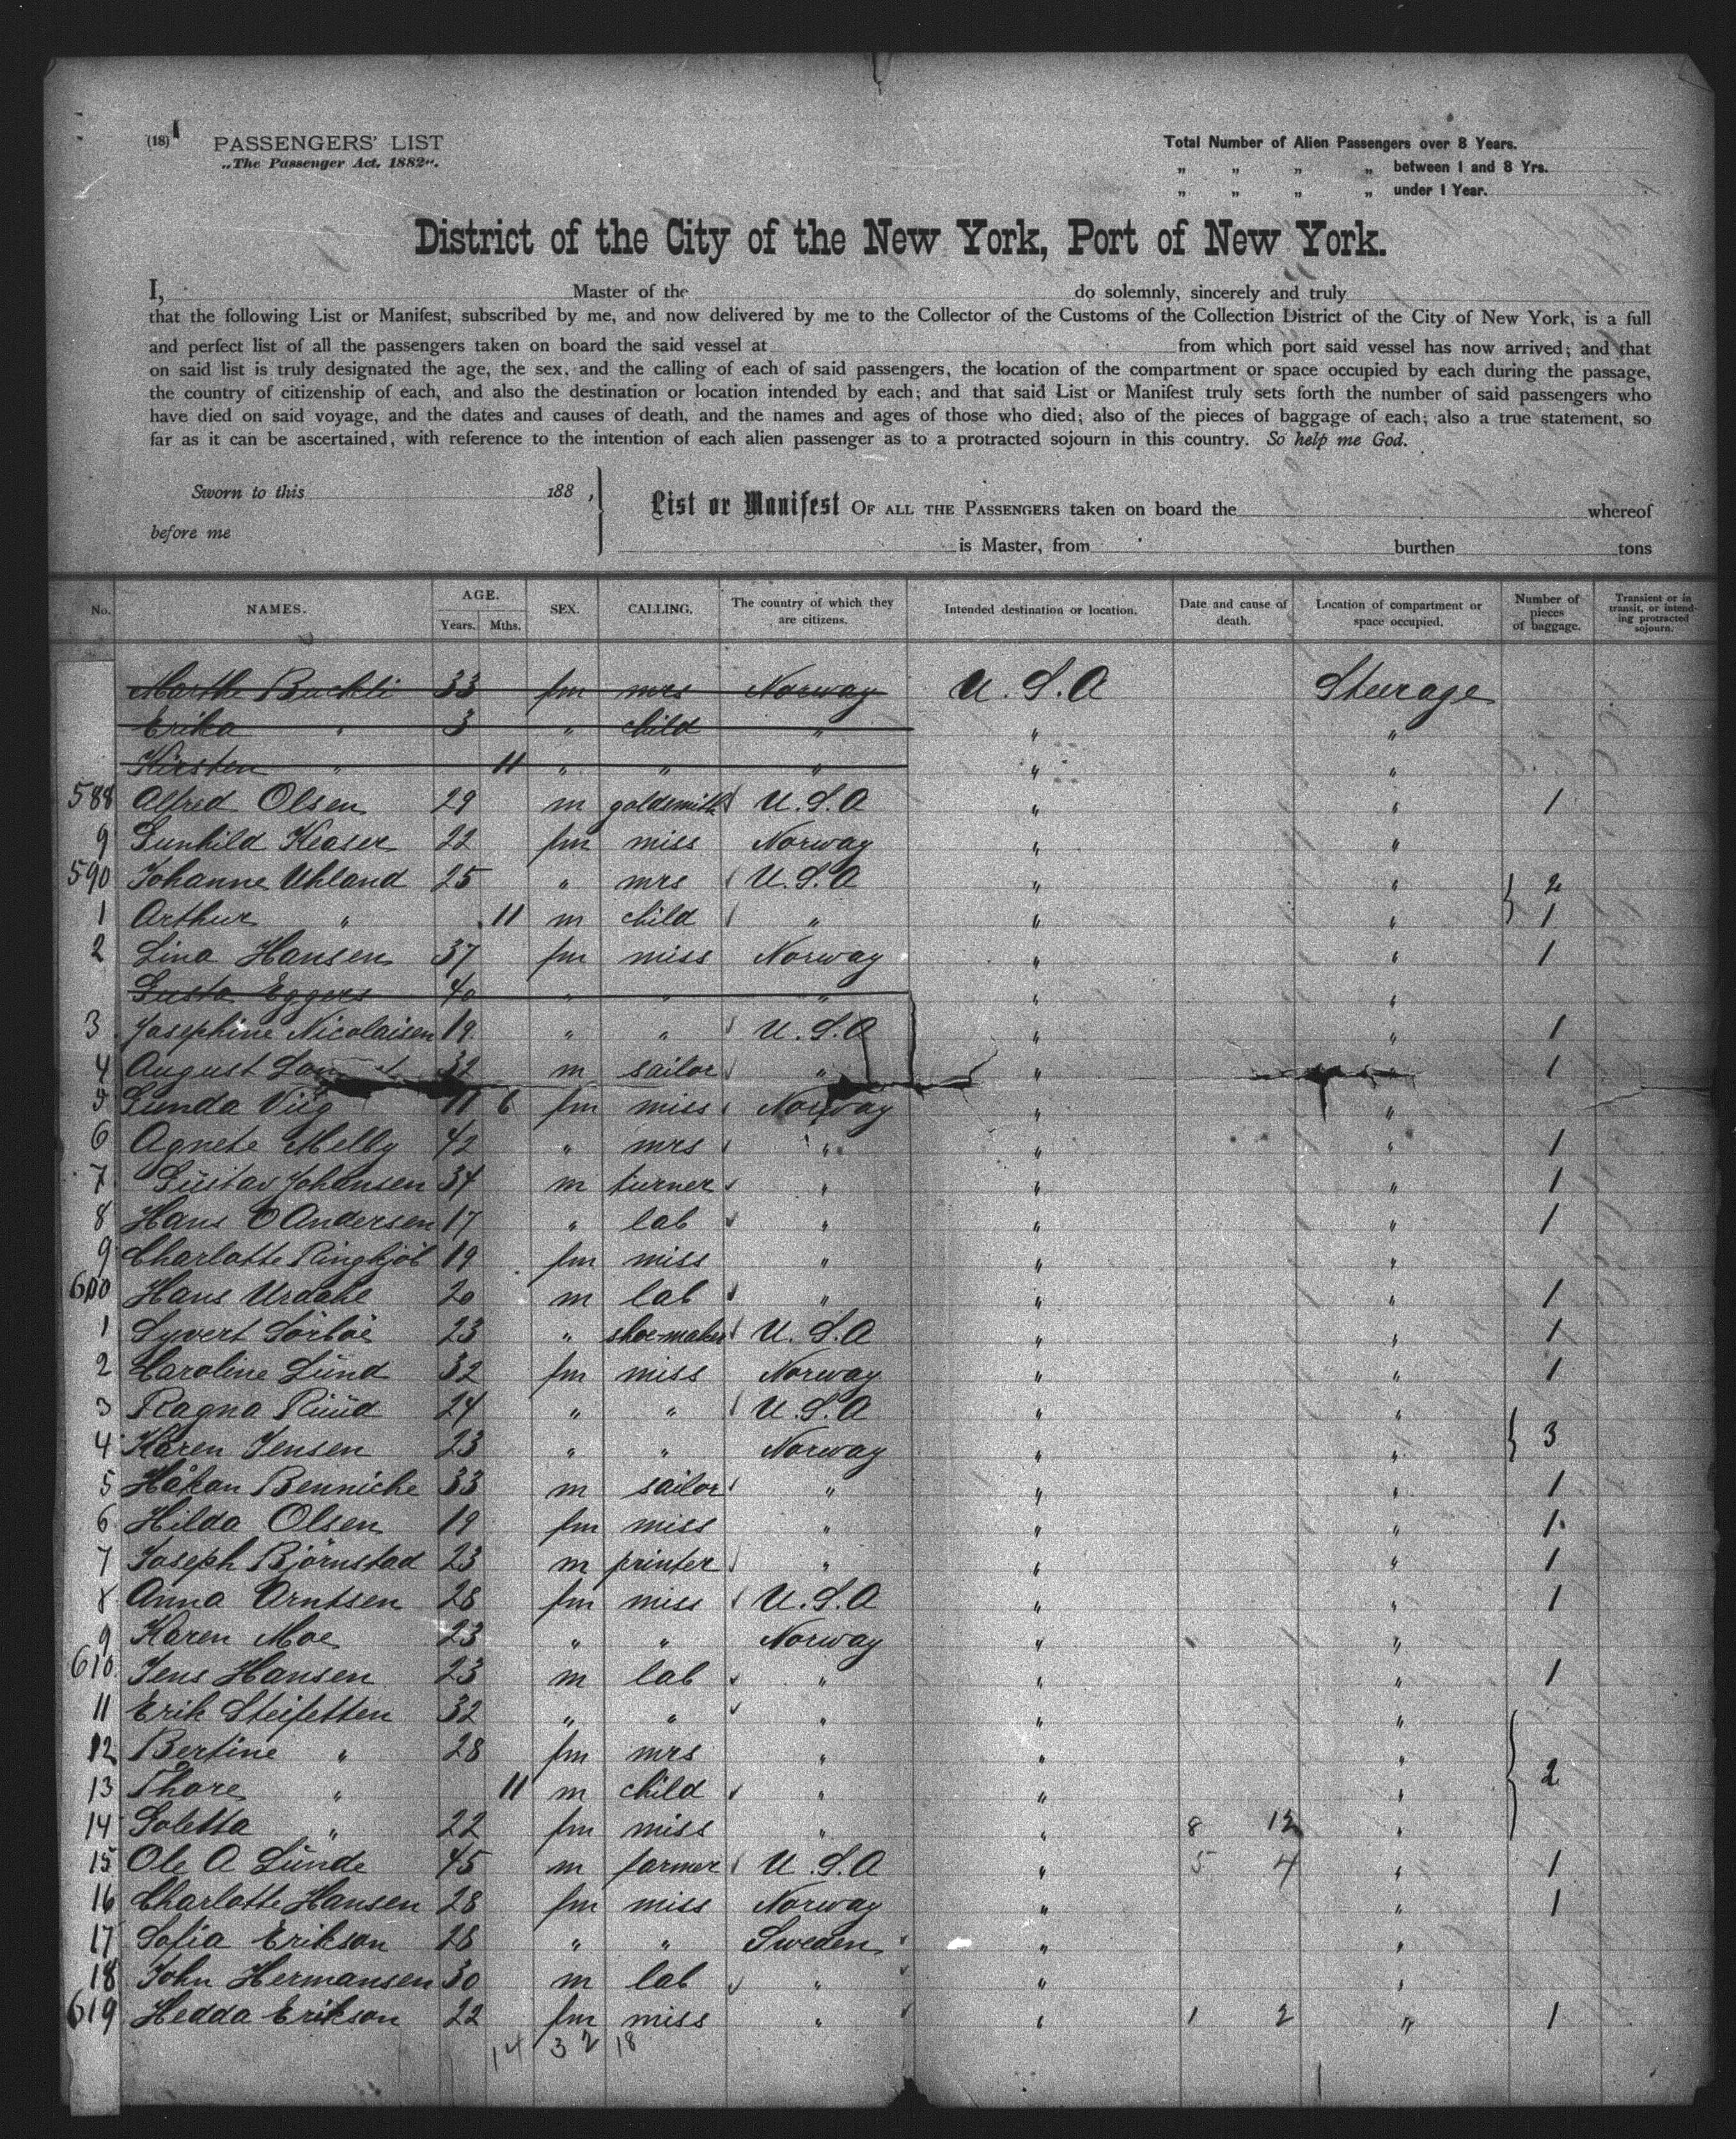 (18) PASSENGERS' LIST
„The Passenger Act, 1882“.
Total Number of Alien Passengers over 8 Years.
„ „ „ „ between 1 and 8 Yrs.
„ „ „ „ under 1 Year.
District of the City of the New York, Port of New York.
I, Master of the do solemnly, sincerely and truly
that the following List or Manifest, subscribed by me, and now delivered by me to the Collector of the Customs of the Collection District of the City of New York, is a full
and perfect list of all the passengers taken on board the said vessel at from which port said vessel has now arrived; and that
on said list is truly designated the age, the sex, and the calling of each of said passengers, the location of the compartment or space occupied by each during the passage,
the country of citizenship of each, and also the destination or location intended by each; and that said List or Manifest truly sets forth the number of said passengers who
have died on said voyage, and the dates and causes of death, and the names and ages of those who died; also of the pieces of baggage of each; also a true statement, so
far as it can be ascertained, with reference to the intention of each alien passenger as to a protracted sojourn in this country. So help me God.
Sworn to this 188 ,
before me
List or Manifest OF ALL THE PASSENGERS taken on board the whereof
is Master, from burthen tons
No. NAMES. AGE. Years. Mths. SEX. CALLING. The country of which they are citizens. Intended destination or location. Date and cause of death. Location of compartment or space occupied. Number of pieces of baggage. Transient or in transit, or intending protracted sojourn.
Marthe Buchli 33 fm mrs Norway U.S.A Steerage
Erika " 3 " child " " "
Kirsten " 11 " " " " "
588 Alfred Olsen 29 m goldsmith U.S.A " " 1
9 Gunhild Keaser 22 fm miss Norway " "
590 Johanne Uhland 25 " mrs U.S.A " " 2
1 Arthur " 11 m child " " " 1
2 Lina Hansen 37 fm miss Norway " " 1
Gusta Eggers 40 " " " " "
3 Josephine Nicolaisen 19 " " U.S.A " " 1
4 August 32 m sailor " " " 1
5 Gunda Viig 11 6 fm miss Norway " "
6 Agnete Melby 42 " mrs " " " 1
7 Güstav Johansen 34 m turner " " " 1
8 Hans O Andersen 17 " lab " " " 1
9 Charlotte Ringkjöb 19 fm miss " " "
600 Hans Urdahl 20 m lab " " " 1
1 Syvert Sörböe 23 " shoe-maker U.S.A " " 1
2 Caroline Lünd 32 fm miss Norway " " 1
3 Ragna Rüüd 24 " " U.S.A " "
4 Karen Jensen 23 " " Norway " " 3
5 Håkan Benniche 33 m sailor " " " 1
6 Hilda Olsen 19 fm miss " " " 1
7 Joseph Björnstad 23 m printer " " " 1
8 Anna Arntsen 28 fm miss U.S.A " " 1
9 Karen Moe 23 " " Norway " "
610 Jens Hansen 23 m lab " " " 1
11 Erik Steifetten 32 " " " " "
12 Bertine " 28 fm mrs " " "
13 Thore " 11 m child " " " 2
14 Goletta " 22 fm miss " " 8 12 "
15 Ole A Lünde 45 m farmer U.S.A " 5 4 " 1
16 Charlotte Hansen 28 fm miss Norway " " 1
17 Sofia Erikson 28 " " Sweden " "
18 John Hermansen 30 m lab " " "
619 Hedda Erikson 22 fm miss " " 1 2 " 1
14 32 18